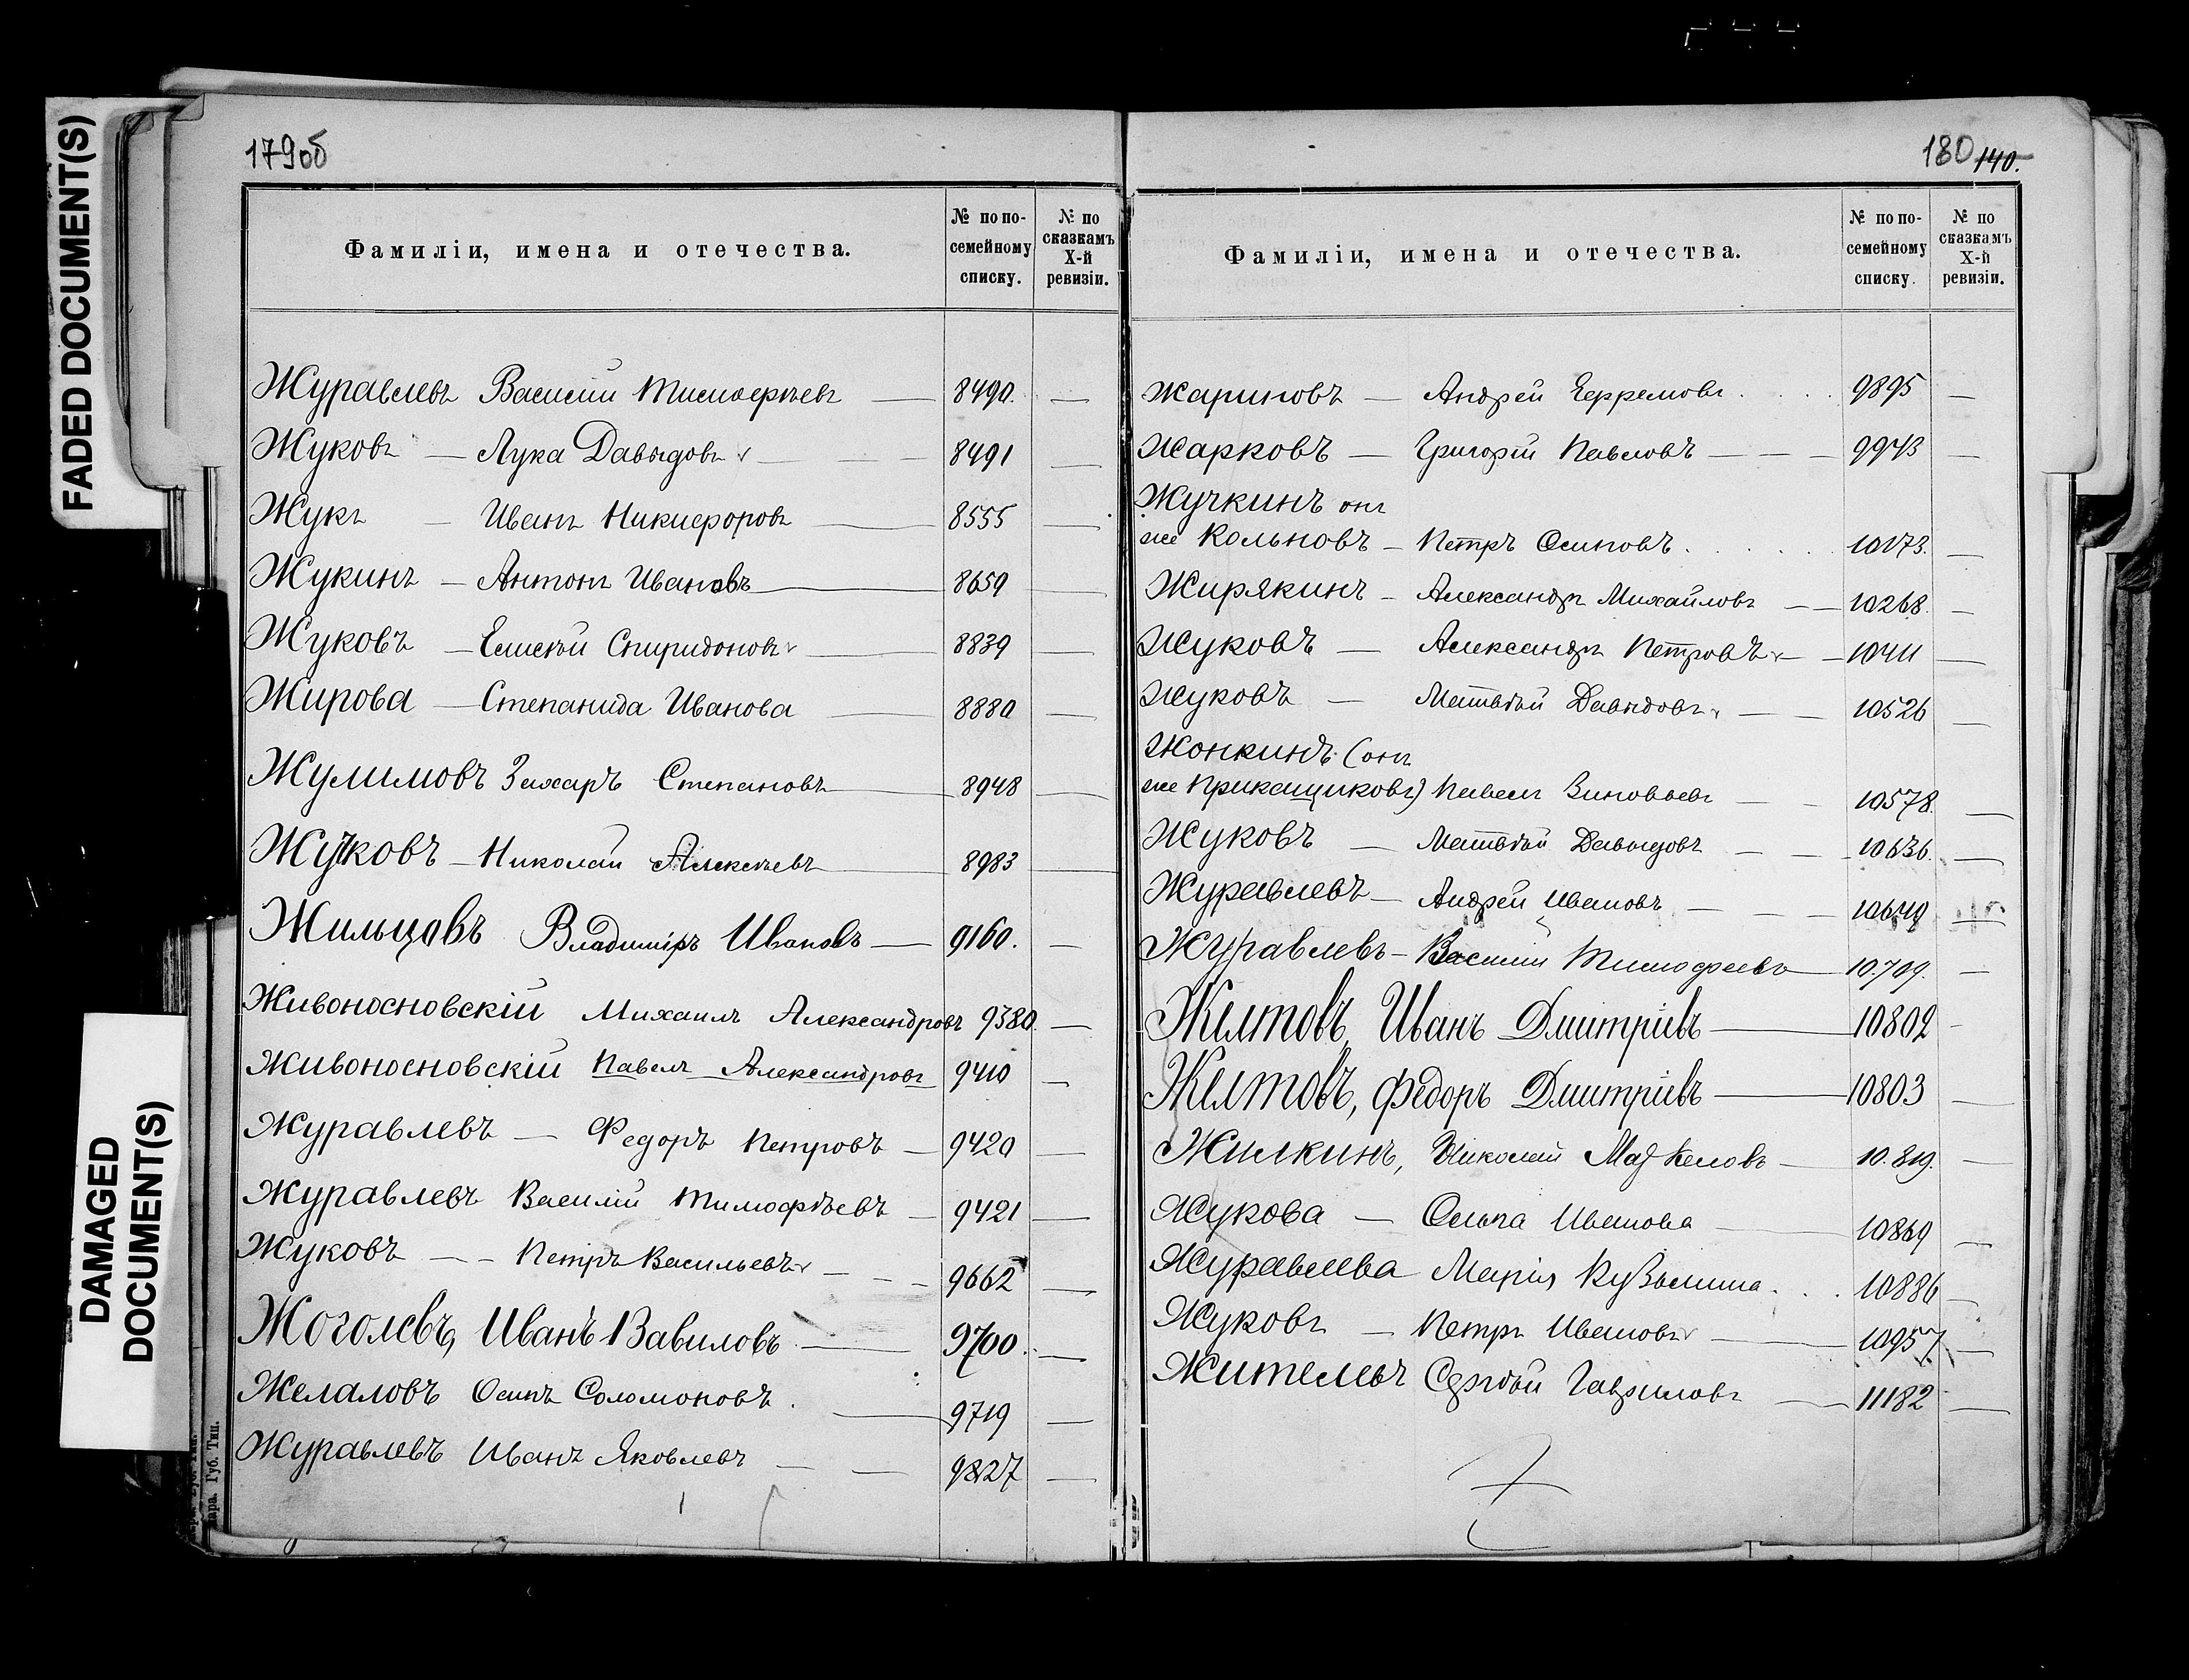 FADED DOCUMENT(S)
DAMAGED
DOCUMENT(S)
179об
Фамиліи, имена и отечества.
№ по по-
семейному
списку.
№ по
сказкамъ
X-й
ревизіи.
Журавлевъ Василій Тимофѣевъ — 8490. —
Жуковъ — Лука Давыдовъ — 8491 —
Жукъ — Иванъ Никифоровъ — 8555 —
Жукинъ — Антонъ Ивановъ — 8659 —
Жуковъ — Елисѣй Спиридоновъ — 8839 —
Жирова — Степанида Иванова — 8880 —
Жулимовъ Захаръ Степановъ — 8948 —
Жучковъ — Николай Алексѣевъ — 8983 —
Жильцовъ Владиміръ Ивановъ — 9160. —
Живоносновскій Михаилъ Александровъ 9380. —
Живоносновскій Павелъ Александровъ 9410 —
Журавлевъ — Федоръ Петровъ — 9420 —
Журавлевъ Василій Тимофѣевъ — 9421 —
Жуковъ — — Петръ Васильевъ — — — 9662 —
Жоголевъ, Иванъ Вавиловъ — 9700. —
Желаловъ Осипъ Соломоновъ. — 9719 —
Журавлевъ Иванъ Яковлевъ — — 9827 —
Губ. Тип.
180 140.
Фамиліи, имена и отечества.
№ по по-
семейному
списку.
№ по
сказкамъ
X-й
ревизіи.
Жариновъ — Андрей Ефремовъ . . . . 9895 —
Жарковъ — Григорій Павловъ — — — 9943 —
Жучкинъ онъ
же Кольновъ — Петръ Осиповъ . . . . . 10173. —
Жирякинъ — Александръ Михайловъ — — 10268. —
Жуковъ — Александръ Петровъ — — 10411 —
Жуковъ — Матвѣй Давыдовъ — — 10526 —
Жонкинъ (онъ
же Прикащиковъ) Павелъ Зиновьевъ — — 10578. —
Жуковъ — Матвѣй Давыдовъ — — — 10636. —
Журавлевъ — Андрей Ивановъ — — — 10649 —
Журавлевъ — Василій Тимофеевъ — 10.709. —
Желтовъ, Иванъ Дмитріевъ — 10802 —
Желтовъ, Федоръ Дмитріевъ — 10803 —
Жилкинъ, Николай — 10.819. —
Жукова — Ольга Иванова — 10869 —
Журавлева Марія Кузьмина . . . 10886 —
Жуковъ — Петръ Ивановъ — 10957 —
Жителевъ Сергѣй Гавриловъ — 11182 —